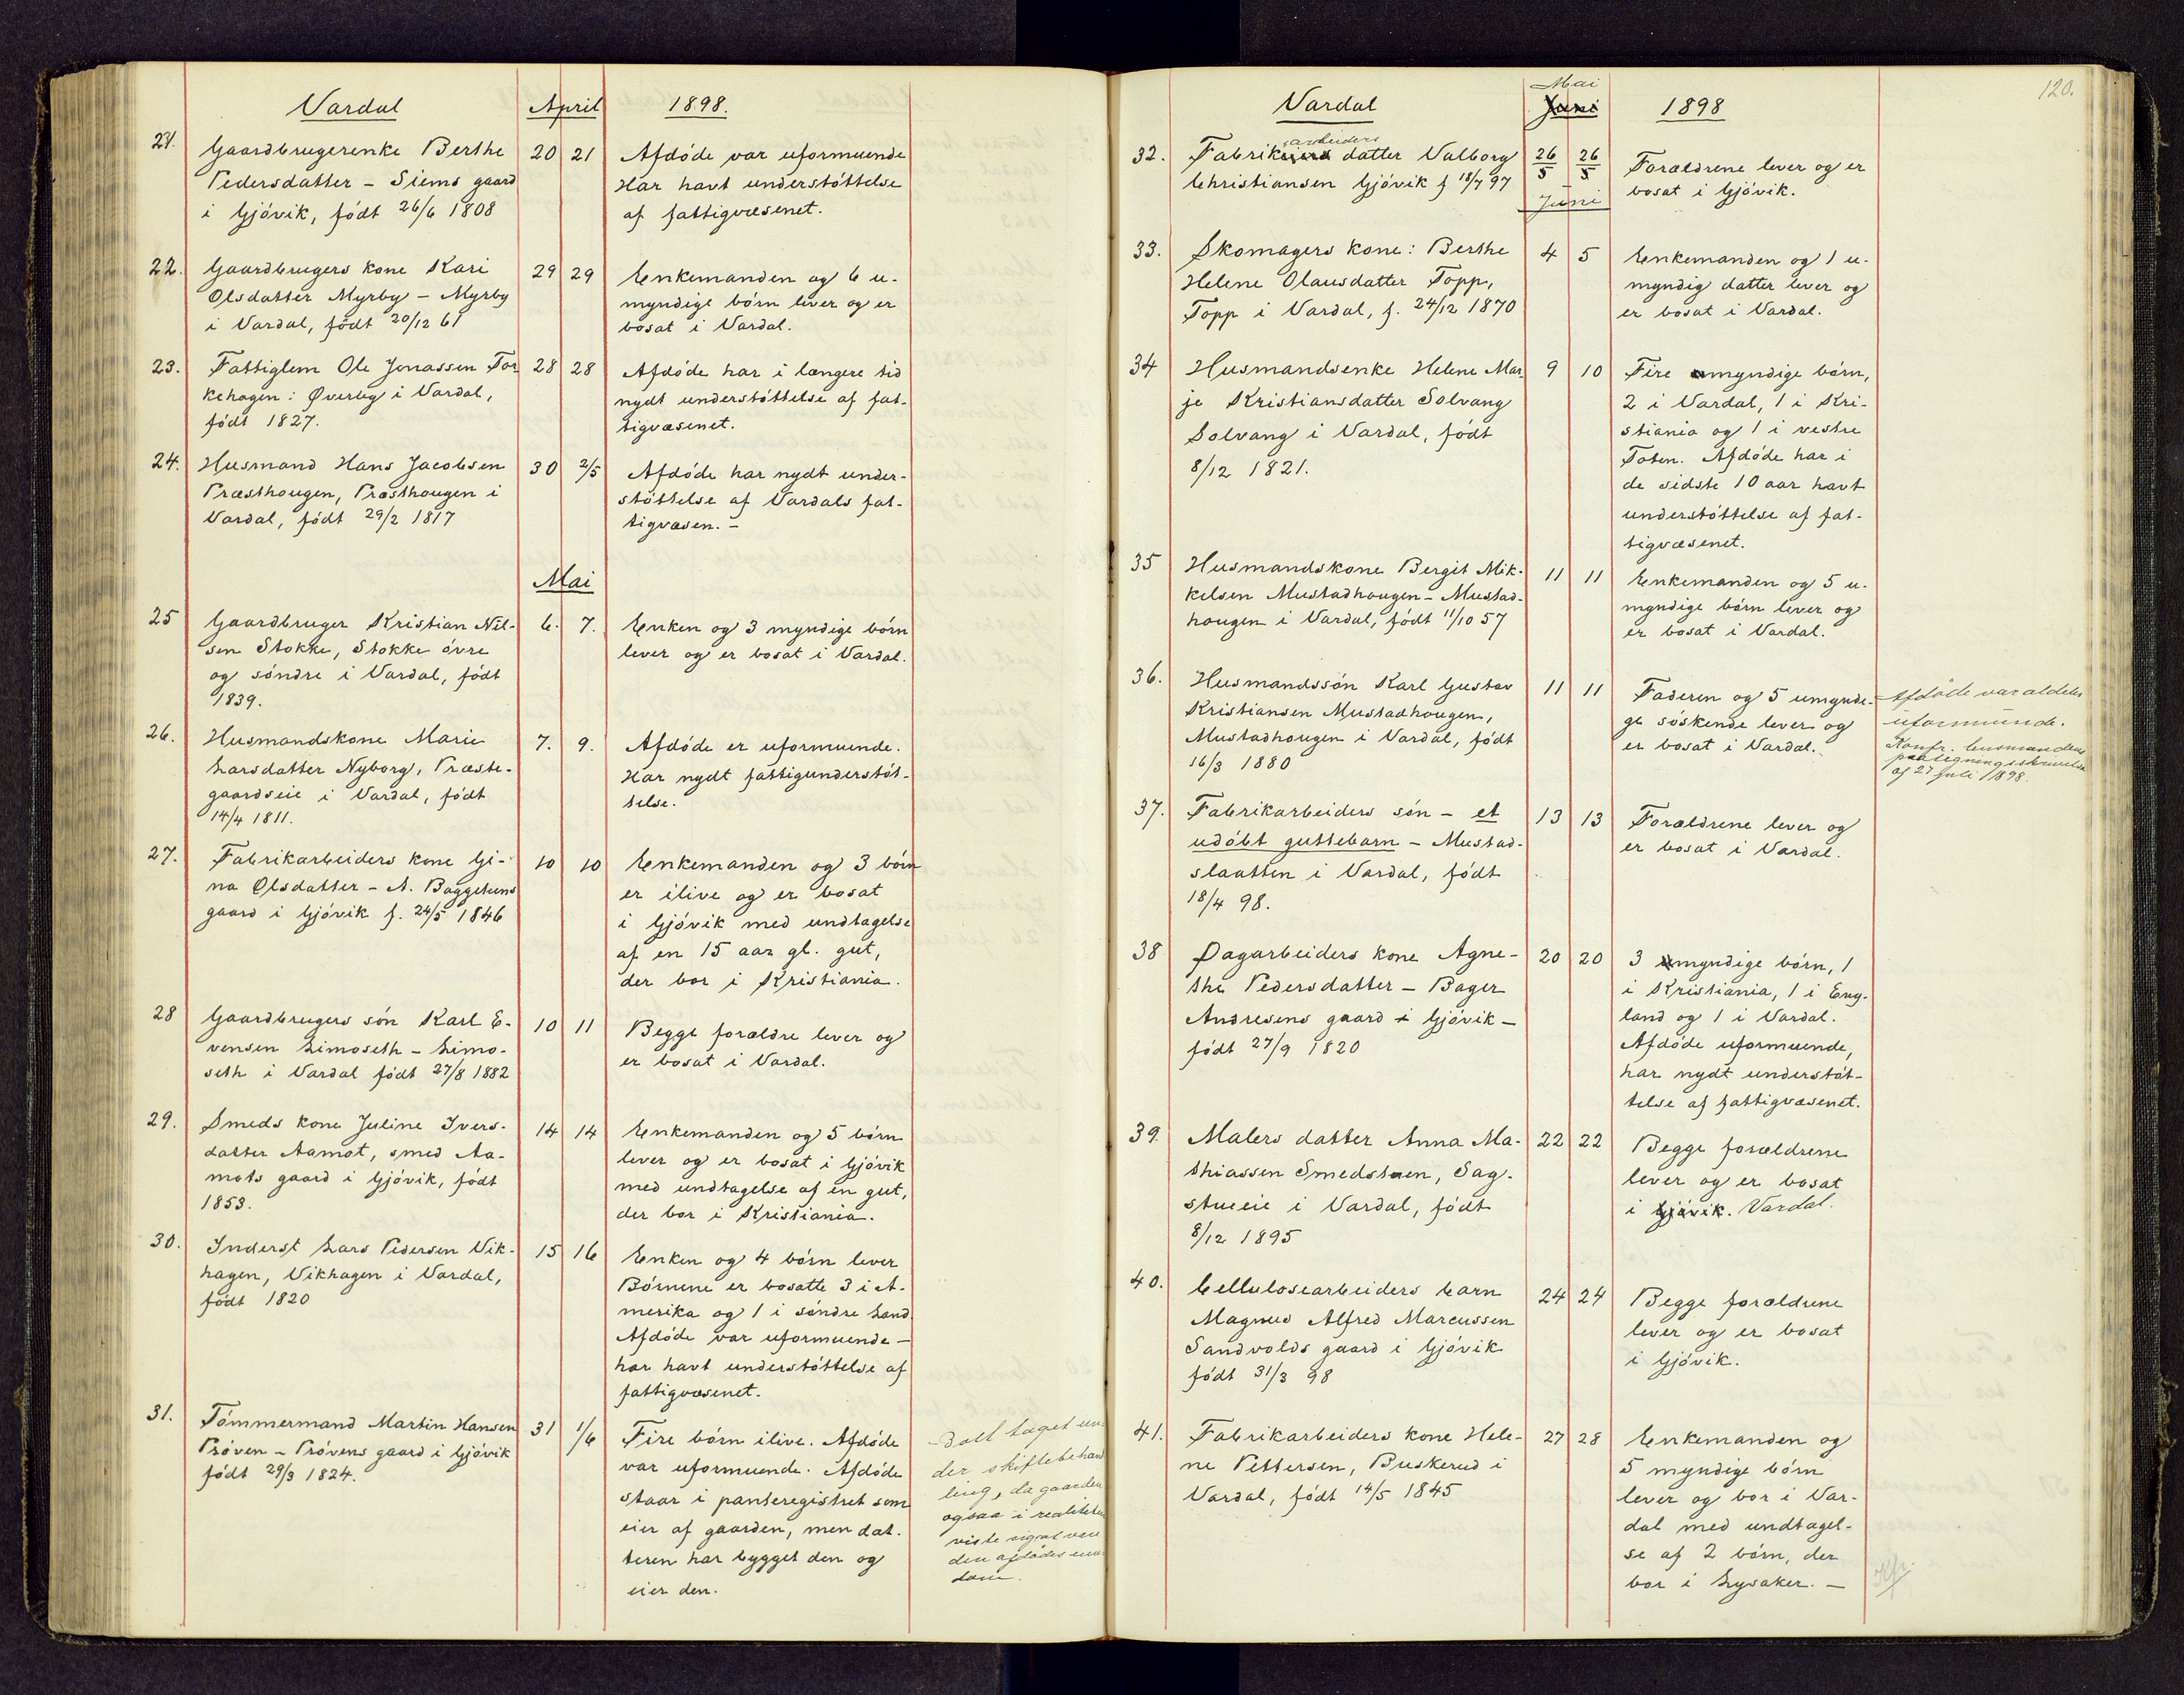 Vardal April 1898.
21. Gaardbrugerenke Berthe 20 21 Afdöde var uformuende
Pedersdatter – Siems gaard Har havt understöttelse
i Gjövik, födt 26/6 1808 af fattigvæsenet.
22. Gaardbrugers kone Kari 29 29 Enkemanden og 6 u-
Olsdatter Myrby – Myrby myndige börn lever og er
i Vardal, födt 20/12 61 bosat i Vardal.
23. Fattiglem Ole Jonassen Tor 28 28 Afdöde har i længere tid
kehagen: Øverby i Vardal, nydt understöttelse af fat-
födt 1827. tigvæsenet.
24. Husmand Hans Jacobsen 30 2/5 Afdöde har nydt under-
Præsthougen, Præsthougen i stöttelse af Vardals fat-
Vardal, födt 29/2 1817 tigvæsen. –
Mai
25 Gaardbruger Kristian Nil- 6. 7. Enken og 3 myndige börn
sen Stokke, Stokke övre lever og er bosat i Vardal.
og söndre i Vardal, födt
1839.
26. Husmandskone Marie 7. 9. Afdöde er uformuende.
Larsdatter Nyborg, Præste- Har nydt fattigunderstöt-
gaardseie i Vardal, födt telse.
14/4 1811.
27. Fabrikarbeiders kone Gi- 10 10 Enkemanden og 3 börn
na Olsdatter – A. Baggetuns er ilive og er bosat
gaard i Gjövik f. 24/5 1846 i Gjövik med undtagelse
af en 15 aar gl. gut,
der bor i Kristiania.
28 Gaardbrugers sön Karl E- 10 11 Begge forældre lever og
vensen Limoseth – Limo- er bosat i Vardal.
seth i Vardal födt 27/8 1882
29. Smeds kone Juline Ivers- 14 14 Enkemanden og 5 börn
datter Aamot, smed Aa- lever og er bosat i Gjövik
mots gaard i Gjövik, födt med undtagelse af en gut,
1853. der bor i Kristiania.
30. Inderst Lars Pedersen Vik- 15 16 Enken og 4 börn lever
hagen, Vikhagen i Vardal, Börnene er bosatte 3 i A-
födt 1820 merika og 1 i söndre Land.
Afdöde var uformuende –
har havt understöttelse af
fattigvæsenet.
31. Tömmermand Martin Hansen 31 1/6 Fire börn ilive. Afdöde
Pröven – Prövens gaard i Gjövik var uformuende. Afdöde
födt 29/3 1824. staar i panteregistret som
eier af gaarden, men dat-
teren har bygget den og
eier den.
Boet taget un-
der skiftebehand
ling, da gaarden
ogsaa i realiteten
viste sig at være
den afdödes eien-
dom.
120.
Vardal Mai Juni 1898
32. Fabrikeiers arbeiders datter Valborg 26/5 26/5 Forældrene lever og er
Christiansen Gjövik f 18/7 97 bosat i Gjövik.
Juni
33. Skomagers kone: Berthe 4 5 Enkemanden og 1 u-
Helene Olausdatter Topp, myndig datter lever og
Topp i Vardal, f. 24/12 1870 er bosat i Vardal.
34 Husmandsenke Helene Mar- 9 10 Fire myndige börn,
je Kristiansdatter Solvang 2 i Vardal, 1 i Kri-
Solvang i Vardal, födt stiania og 1 i vestre
8/12 1821. Toten. Afdöde har i
de sidste 10 aar havt
understöttelse af fat-
tigvæsenet.
35 Husmandskone Bergit Mik- 11 11 Enkemanden og 5 u-
kelsen Mustadhougen – Mustad- myndige börn lever og
hougen i Vardal, födt 11/10 57 er bosat i Vardal.
36. Husmandssön Karl Gustav 11 11 Faderen og 5 umyndi-
Kristiansen Mustadhougen, ge söskende lever og
Mustadhougen i Vardal, födt er bosat i Vardal.
16/3 1880
Afdöde var aldeles
uformuende.
Konfr. lensmandens
paategningsskrivelse
af 27 juli 1898.
37. Fabrikarbeiders sön – et 13 13 Forældrene lever og
udöbt guttebarn – Mustad- er bosat i Vardal.
slaatten i Vardal, födt
18/4 98.
38 Dagarbeiders kone Agne- 20 20 3 myndige börn, 1
the Pedersdatter – Bager i Kristiania, 1 i Eng-
Andresens gaard i Gjövik – land og 1 i Vardal.
födt 27/9 1820 Afdöde uformuende,
har nydt understöt-
telse af fattigvæsenet.
39. Malers datter Anna Ma- 22 22 Begge forældrene
thiassen Smedstuen, Sag- lever og er bosat
stueeie i Vardal, födt i Gjövik. Vardal.
8/12 1895
40. Cellulosearbeiders barn 24 24 Begge forældrene
Magnus Alfred Marcussen lever og er bosat
Sandvolds gaard i Gjövik i Gjövik.
födt 31/3 98
41. Fabrikarbeiders kone Hele- 27 28 Enkemanden og
ne Pettersen, Buskerud i 5 myndige börn
Vardal, födt 14/5 1845 lever og bor i Var-
dal med undtagel-
se af 2 börn, der
bor i Lysaker. –